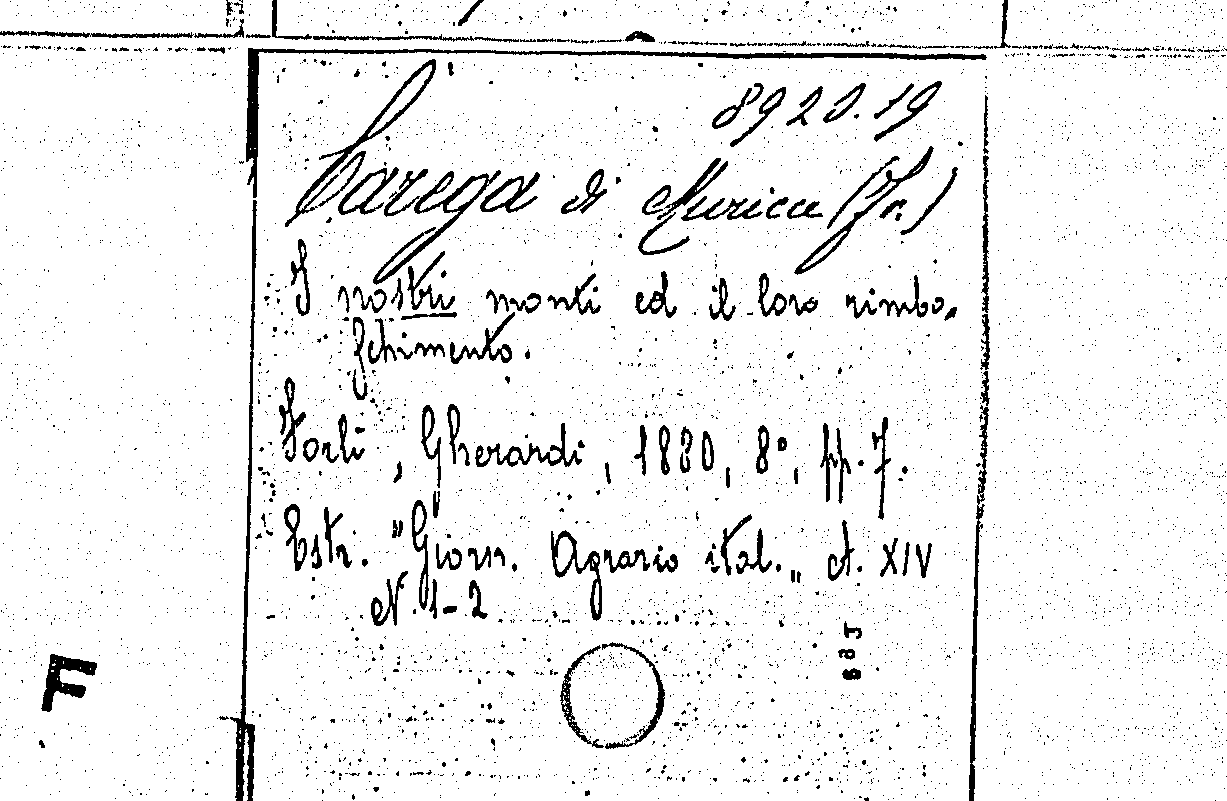 8920.19
Carega di Muricce (Fr.)
I nostri monti ed il loro rimbo-
schimento.
Forlì, Gherardi, 1880, 8°, pp. 7.
Estr. "Giorn. Agrario ital.„ A. XIV
N. 1-2
F